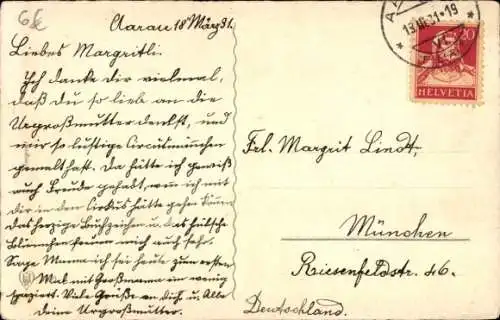 Aarau 18 März 31.
Liebes Margritli.
Ich danke dir vielmal,
daß du so lieb an die
Urgroßmutter denkst, und
mir so lustige Circusmännchen
gemalt hast. Da hätte ich gewiß
auch Freude gehabt, wenn ich mit
dir in den Cirkus hätte gehen können
das herzige Buchzeichen u. das hübsche
Blümchen freuen mich auch sehr.
Sage Mamma ich sei heute zum ersten
Mal mit Großmamma ein wenig
spaziert. Viele Grüße an dich u. Alle
deine Urgroßmutter.
20
HELVETIA
Frl. Margrit Lindt,
München
Riesenfeldstr. 46.
Deutschland.